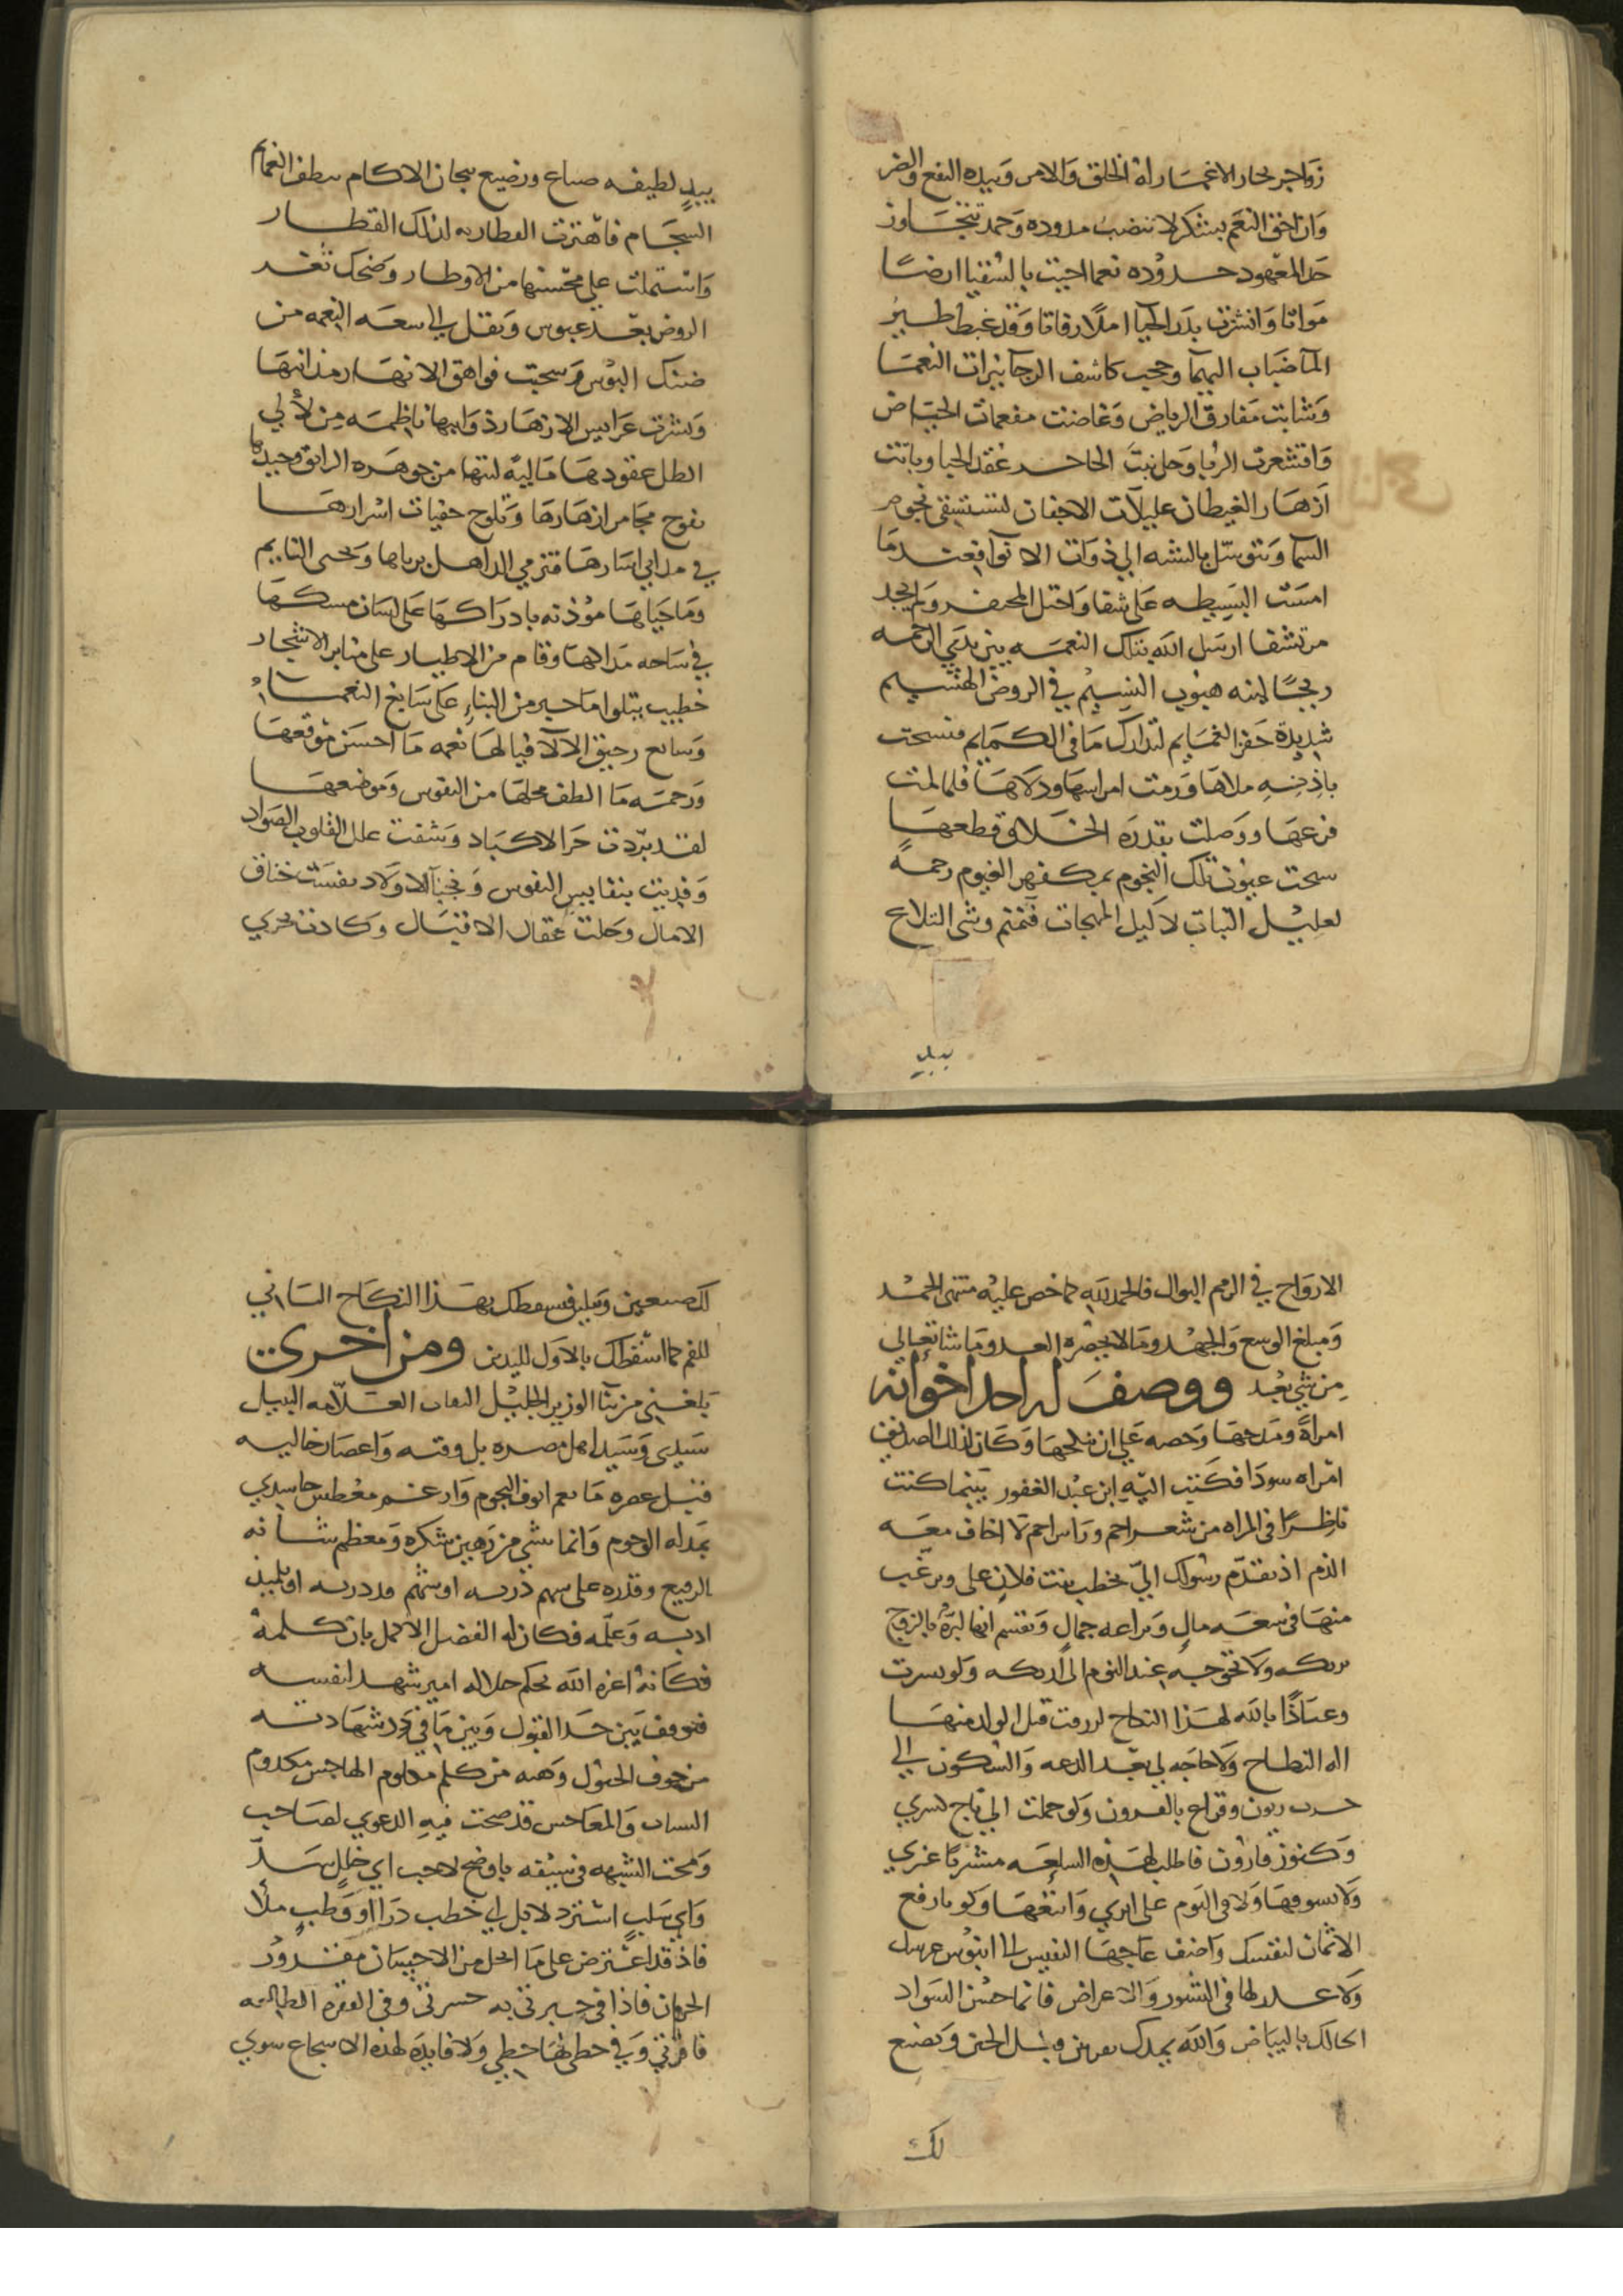 زواجر بحار الاغمار له الخلق والامر وبيده النفع والضر
وان احق النعم بشكر لا تنضب مدوده وحمد تتجاوز
حد المعهود حدوده نعما احيت بالسقيا ارضا
مواتا وانشرت بدر الحيا املا رفاتا وقد غيط طير
الما ضباب اليهما وحجب كاشف الرجا نيرات النعما
وشابت مفارق الرياض وغاضت مفعمات الحياض
واقشعرت الربا وحل نبت عقد الحيا وباتت
ازهار الغيطان عليلات الاجفان لتستسقى نجوم
السما وتتوسل بالشبه الى ذوات الانوا فعندما
امست البسيطه على شفا واختل ولم يجد
مرتشفا ارسل الله بتلك النعمه بين يدي الرحمه
ريحا لينه هبوب النسيم في الروض الهشيم
شديدة حفز الغمايم لتدارك ما في الكمايم فسحت
باذنه ملاها ورمت امراسها ودلاها فلما لمت
قزعها ووصلت بقدرة الخلاق قطعها
سحت عيون تلك النجوم بمكفهر الغيوم رحمة
لعليل النبات لا كليل المهجات فنمنم وشى التلاع
بيد
بيد لطيفه صناع ورضيع الاكام نطف الغمام
السجام فاهتزت العطاريه لذلك القطار
واشتملت على محسنها من الاوطار وضحك ثغر
الروض بعد عبوس ونقل الى سعه النعمه من
ضنك البوس وسحبت فواهق الانهار مذانبها
ونشرت عرايس الازهار ذوايبها ناظمه من لألي
الطل عقودها لبتها من جوهره الرايق وجيدها
بفوح مجامر ازهارها وتلوح خفيات اسرارها
في مداني اسارها فترمي الذاهل برياها وتحيى النايم
وما حياها مؤذنه بادراكها على لسان مسكها
في ساحه مداكها وقام من الاطيار على منابر الاشجار
خطيب يتلوا ما حبر من الثناء على سابغ النعماء
وسايغ رحيق الالا فيا لها نعمه ما احسن موقعها
ورحمه ما الطف محلها من النفوس وموضعها
لقد بردت حر الاكباد وشفت علل القلوب الصواد
وفديت بنفايس النفوس ونجبا الاولاد نفست خناق
الامال وحلت عقال الاقتبال وكادت تجري
الارواح في الرمم البوال فالحمد لله كما خص عليه منتهى الحمد
ومبلغ الوسع والجهد وما لا يحصره العد وما شا تعالى
من شي بعد ووصف له احد اخوانه
امراة ومدحها وحصه على ان ينكحها وكان لذلك الصديق
امراه سودا فكتب اليه ابن عبد الغفور بينما كنت
ناظرا في المراه من شعر احم وراس اجم لا اخاف معه
الذم اذ تقدم رسولك الي يخطب بنت فلان على ويرغب
منها في سعه مال وبراعه جمال وتقسم انها لبرة بالزوج
بريكه ولا تحوجه عند النوم الى اريكه ولو يسرت
وعياذا بالله لهذا النكاح لرزقت قبل الولد منها
اله النطاح ولا حاجه لي بعد الدعه والسكون الى
حرب زبون وقراع بالقرون ولو حملت الي تاج كسري
وكنوز قارون فاطلب لهذه السلعه مشتريا غيري
ولا تسوقها ولا فى النوم على ابري وابتعها ولو بارفع
الاثمان لنفسك واضف عاجها النفيس الى ابنوس عرسك
ولا عدل لها في النشوز والاعراض فانما حسن السواد
الحالك بالبياض والله يمدك بقرنين ويسل الحق وتصنع
لك
لك صنعين ويليق بهذا النكاح الثاني
للفم كما اسقطك بالاول لليدين ومن اخرى
بلغني من ثنا الوزير الجليل النقاب العلامه النبيل
سيدى وسيد اهل مصره بل وقته واعصار خاليه
قبل عصره ما نعم انوف النجوم وارغم معطس حاسدي
بمداه الوجوم وانما شي من رهين شكره ومعظم شانه
الرفيع وقدره على سهم او تلميذ
ادبه وعلمه فكان له الفضل الاكمل بان كلمة
فكانه اعزه الله يحكم امير شهد لنفسه
فتوقف بين حد القبول وبين ما في رد شهادته
من خوف وهبه من كلم معلوم الهاجس مكدوم
قد صحت فيه الدعوي لصاحب
ومحت الشبهه في سبقه باوضح لاحب اي خلل سد
واي سلب استرد لا بل اي خطب درا او وطب ملا
فاذ قد اعترض على ما احل من الاحسان مقدور
الحرمان فاذا في جبرتني به حسرتي وفي الفقره الطالعه
فاقرتي وفي حطي لها حطي ولا فايدة لهذه الاسجاع سوي